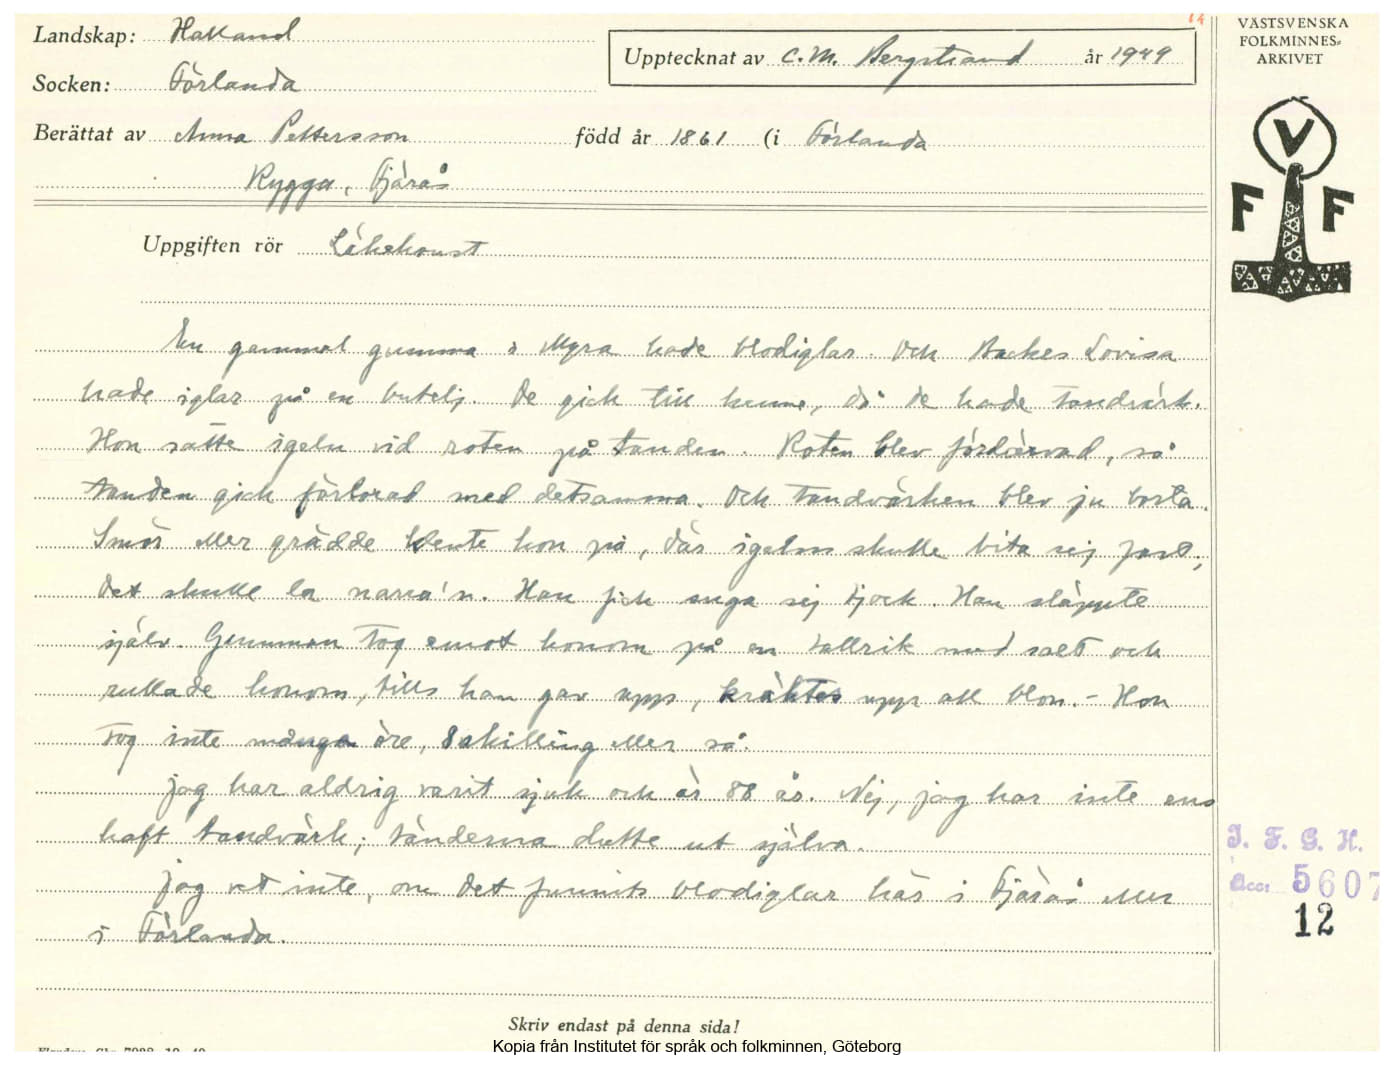 14
Landskap: Halland
VÄSTSVENSKA
FOLKMINNES-
ARKIVET
Upptecknat av C. M. Bergstrand år 1949
Socken: Förlanda
Berättat av Anna Pettersson född år 1861 (i Förlanda
Rygga, Fjärås
V
F F
Uppgiften rör Läkekonst
En gammal gumma i Myra hade blodiglar. Och Backes Lovisa
hade iglar på en butelj. De gick till henne, då de hade tandvärk.
Hon satte igeln vid roten på tanden. Roten blev fördärvad, så
tanden gick förlorad med detsamma. Och tandvärken blev ju borta.
Smör eller grädde kLente hon på, där igeln skulle bita sej fast,
det skulle la narra'n. Han fick suga sej tjock. Han släppte
själv. Gumman tog emot honom på en tallrik med salt och
rullade honom, tills han gav upp, kräktes upp all blon. – Hon
tog inte många öre, 8 skilling eller så.
Jag har aldrig varit sjuk och är 88 år. Nej, jag har inte ens
haft tandvärk; tänderna dutte ut själva.
Jag vet inte, om det funnits blodiglar här i Fjärås eller
i Förlanda.
I. F. G. H.
Acc. 5607
12
Skriv endast på denna sida!
Kopia från Institutet för språk och folkminnen, Göteborg